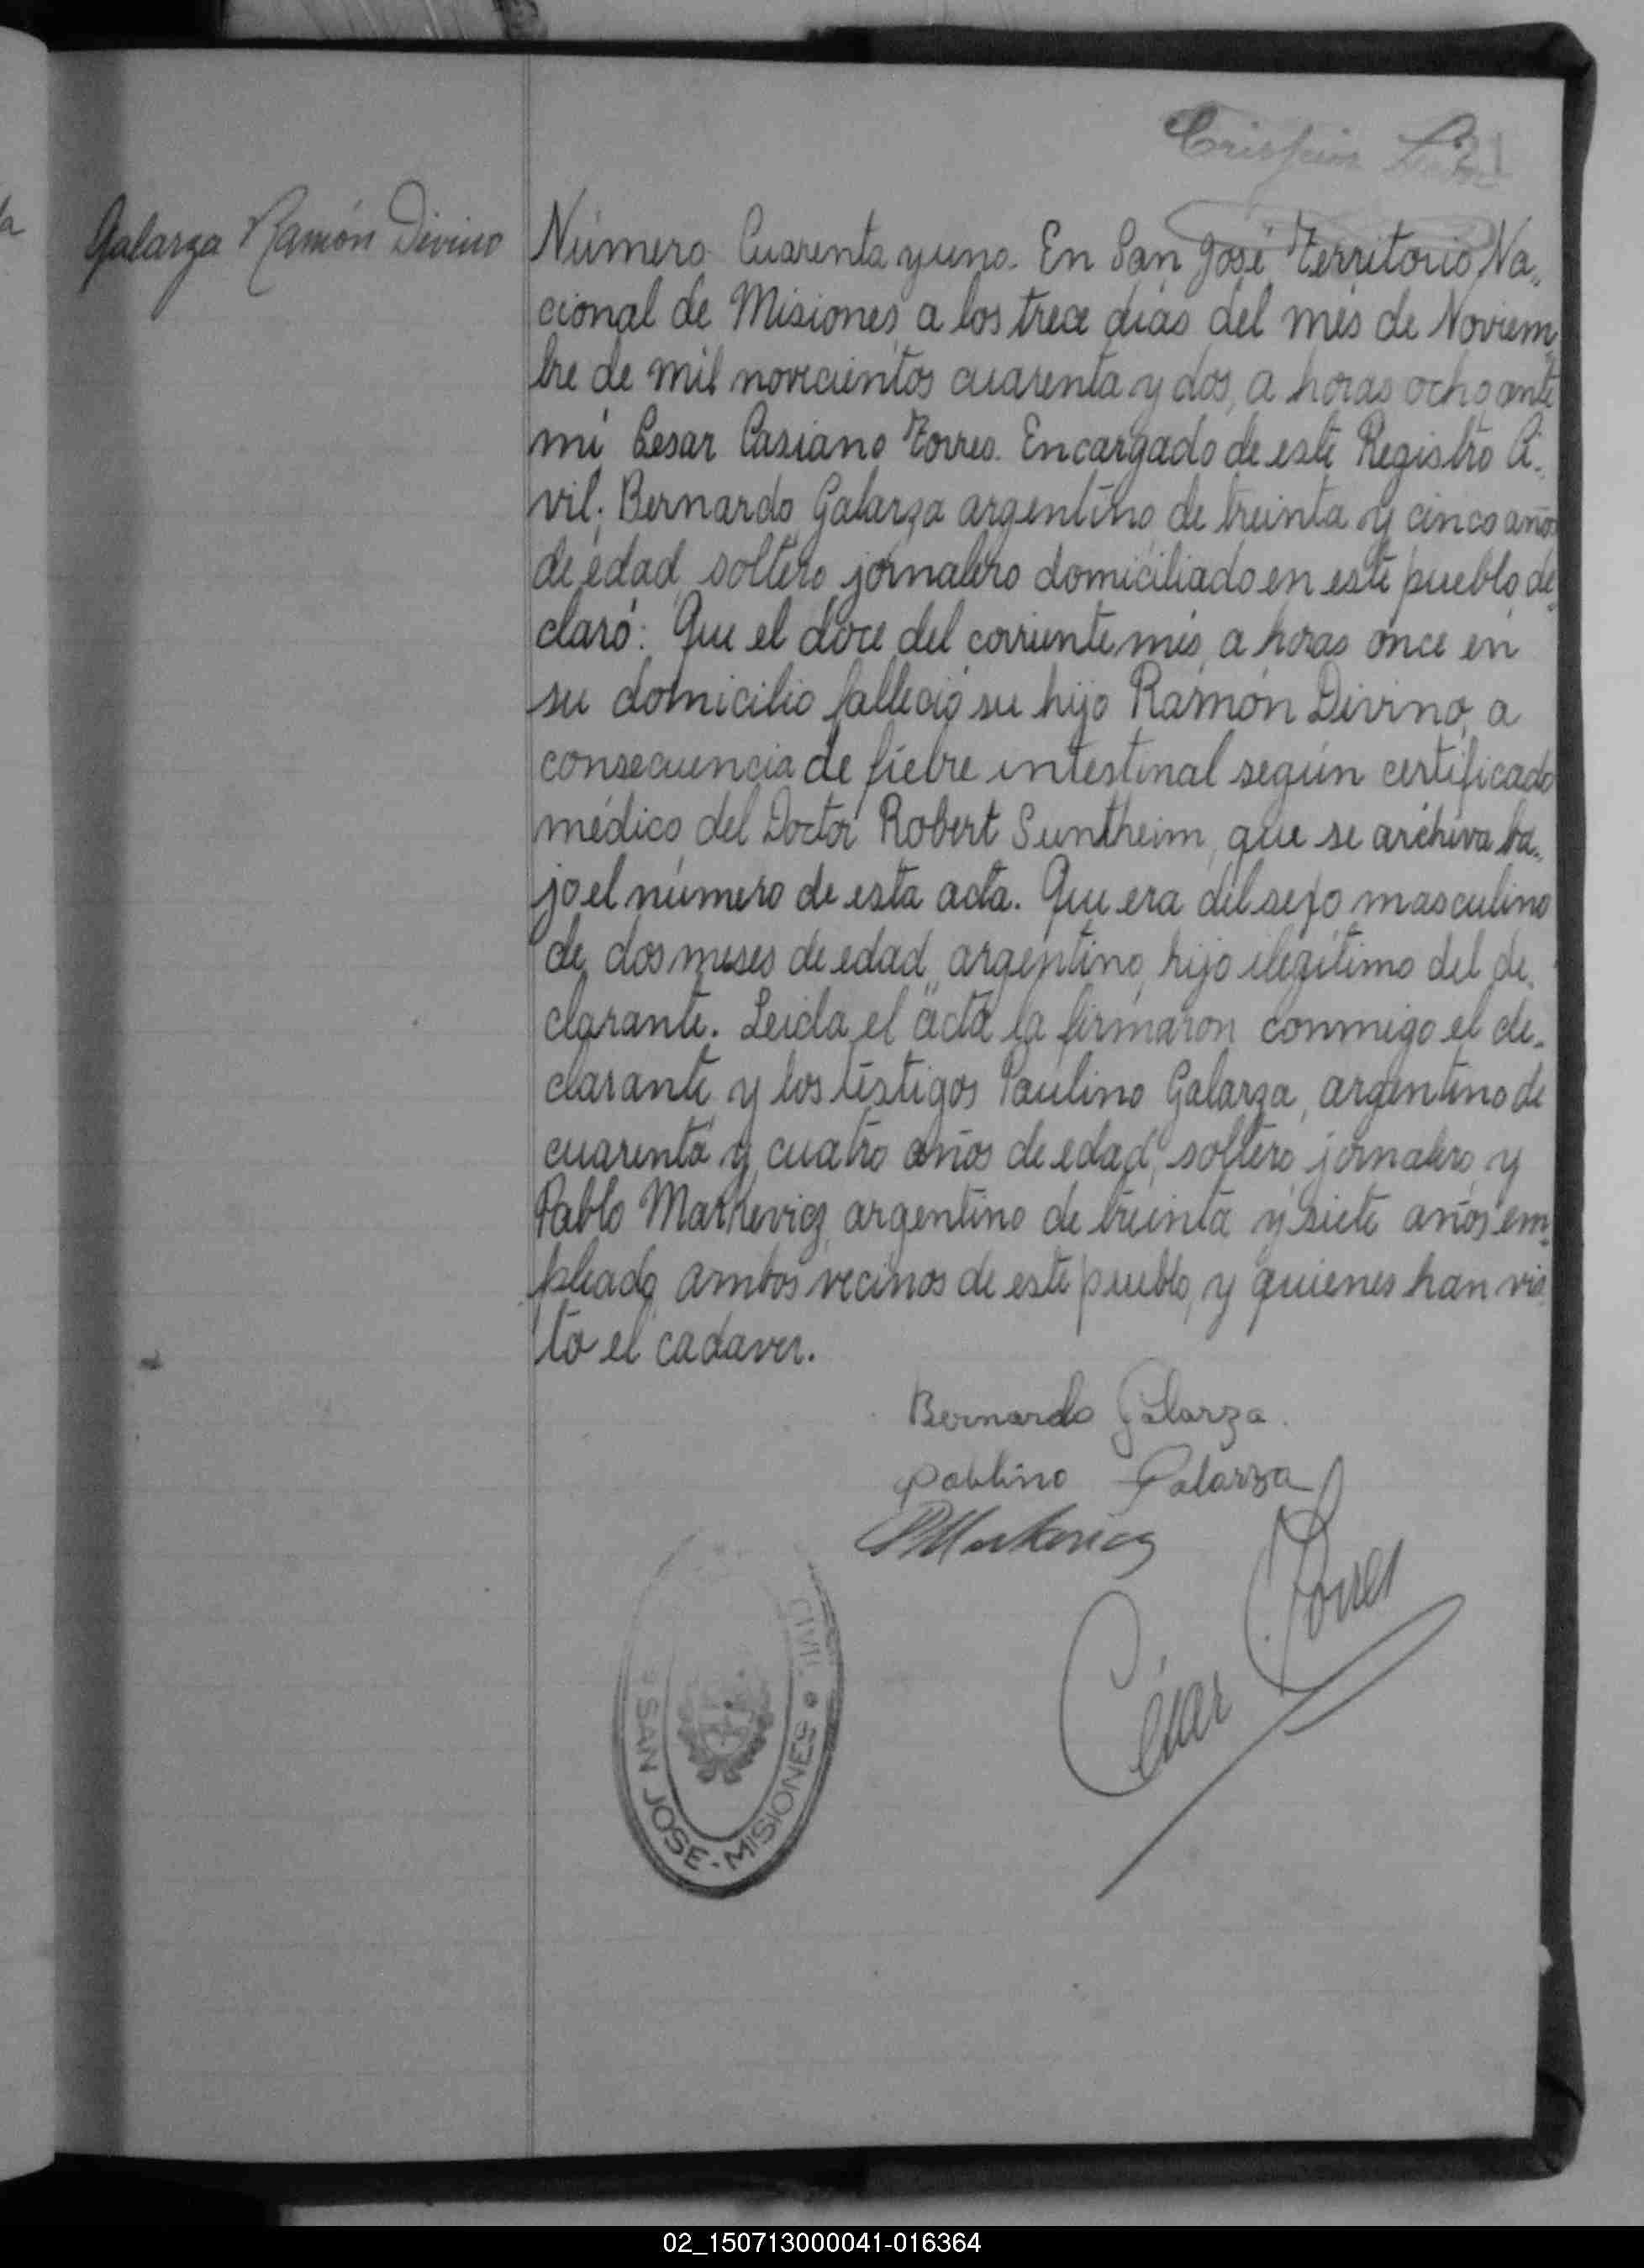 Crispin
21
Galarza Ramón Divino
Número Cuarenta y uno. En San José, Territorio Na-
cional de Misiones, a los trece días del més de Noviem-
bre de mil novecientos cuarenta y dos, a horas ocho, ante
mi Cesar Casiano Torres. Encargado de este Registro Ci-
vil; Bernardo Galarza argentino, de treinta y cinco años
de edad, soltero, jornalero domiciliado en este pueblo, de-
claró: Que el doce del corriente més, a horas once en
su domicilio falleció su hijo Ramón Divino, a
consecuencia de fiebre intestinal según certificado
médico del Doctor Robert Suntheim, que se archiva ba-
jo el número de esta acta. Que era del sexo masculino
de dos meses de edad, argentino, hijo ilegítimo del de-
clarante. Leida el acta la firmaron conmigo el de-
clarante y los testigos Paulino Galarza, argentino de
cuarenta y cuatro años de edad, soltero, jornalero, y
Pablo Markevicz, argentino de treinta y siete años em-
pleado, ambos vecinos de este pueblo, y quienes han vis-
to el cadaver.
Bernardo Galarza.
Pablino Galarza
PMarkevicz
César Torres
CIVIL
SAN JOSE - MISIONES
02_150713000041-016364